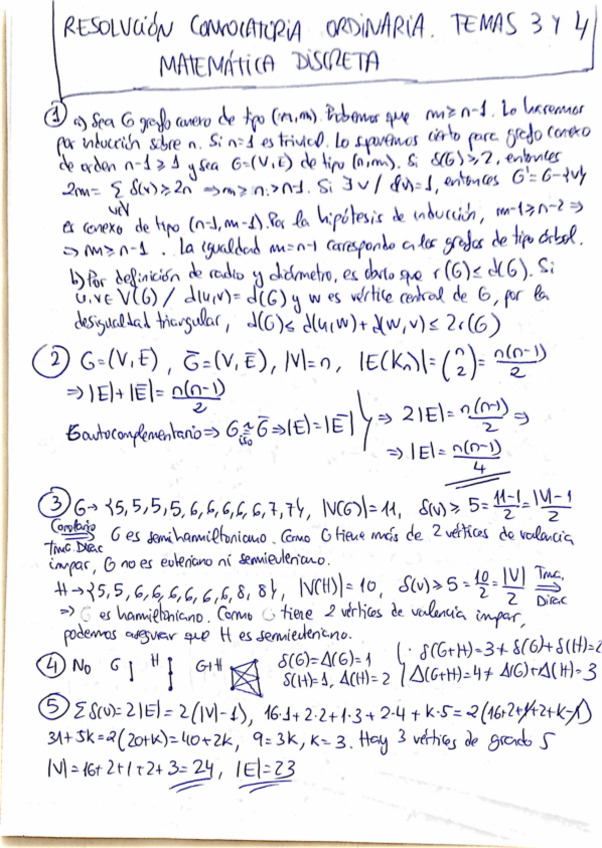 RESOLUCIÓN CONVOCATORIA ORDINARIA. TEMAS 3 Y 4
MATEMÁTICA DISCRETA
① a) Sea G grafo conexo de tipo (n,m). Probemos que m≥n-1. Lo haremos
por inducción sobre n. Si n=1 es trivial. Lo suponemos cierto para grafo conexo
de orden n-1≥1 y sea G=(V,E) de tipo (n,m). Si δ(G)≥2, entonces
2m = Σ δ(v) ≥ 2n ⇒ m≥n>n-1. Si ∃v / δ(v)=1, entonces G'=G-{v}
v∈V
es conexo de tipo (n-1,m-1). Por la hipótesis de inducción, m-1≥n-2 ⇒
⇒ m≥n-1. La igualdad m=n-1 corresponde a los grafos de tipo árbol.
b) Por definición de radio y diámetro, es obvio que r(G)≤d(G). Si
u,v∈V(G) / d(u,v)=d(G) y w es vértice central de G, por la
desigualdad triangular, d(G)≤d(u,w)+d(w,v)≤2r(G)
② G=(V,E), Ḡ=(V,Ē), |V|=n, |E(Kn)|=(n 2)=n(n-1)/2
⇒ |E|+|Ē|=n(n-1)/2
G autocomplementario ⇒ G ≅iso Ḡ ⇒ |E|=|Ē| } ⇒ 2|E|=n(n-1)/2 ⇒
⇒ |E|=n(n-1)/4
③ G→{5,5,5,5,6,6,6,6,6,7,7}, |V(G)|=11, δ(v)≥5=11-1/2=|V|-1/2
Corolario Tma. Dirac ⇒ G es semihamiltoniano. Como G tiene más de 2 vértices de valencia
impar, G no es euleriano ni semieuleriano.
H→{5,5,6,6,6,6,6,6,8,8}, |V(H)|=10, δ(v)≥5=10/2=|V|/2 ⇒ Tma. Dirac
⇒ G es hamiltoniano. Como G tiene 2 vértices de valencia impar,
podemos asegurar que H es semieuleriano.
④ No G H G+H δ(G)=Δ(G)=1 { · δ(G+H)=3≠δ(G)+δ(H)=2
δ(H)=1, Δ(H)=2 Δ(G+H)=4≠Δ(G)+Δ(H)=3
⑤ Σδ(v)=2|E|=2(|V|-1), 16·1+2·2+1·3+2·4+k·5=2(16+2+1+2+k-1)
31+5k=2(20+k)=40+2k, 9=3k, k=3. Hay 3 vértices de grado 5
|V|=16+2+1+2+3=24, |E|=23